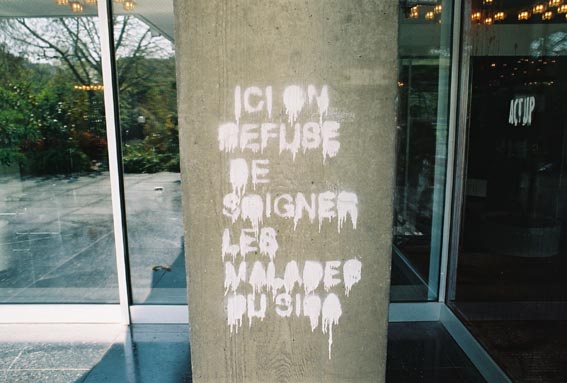 ICI ON
REFUSE
DE
SOIGNER
LES
MALADES
DU SIDA
ACT UP